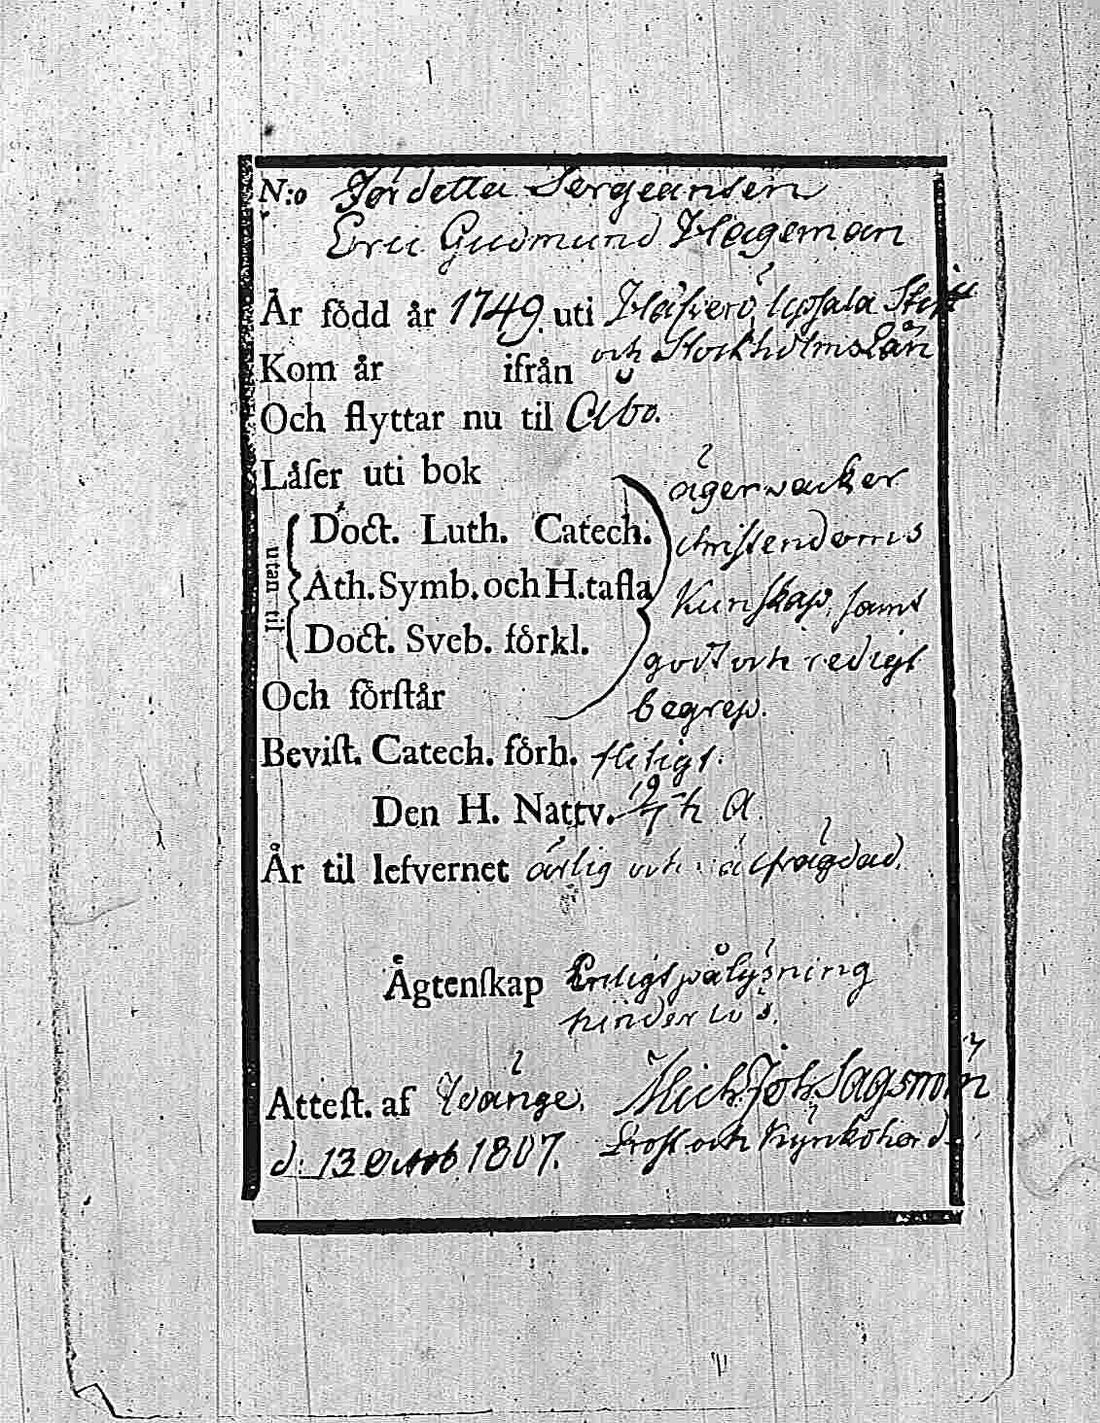 N:o Fördetta Sergeanten
Eric Gudmund Hageman
År född år 1749. uti Häfverö, Upsala Stift
och Stockholms Län
Kom år ifrån
Och flyttar nu til Åbo.
Låſer uti bok
äger wacker
utan til
Doct. Luth. Catech.
christendoms
Ath. Symb. och H. tafla
Kunskap, samt
Doct. Sveb. förkl.
godt och redigt
Och förſtår
begrep.
Beviſt. Catech. förh. flitigt.
Den H. Nattv. 19/7 h. a.
År til lefvernet ärlig och wälfrägdad.
Ågtenſkap Enligt pålysning
hinderlös.
Atteſt. af Wånge. Mich. Joh.
d: 13 Octob 1807. Prost och Kyrkoherd